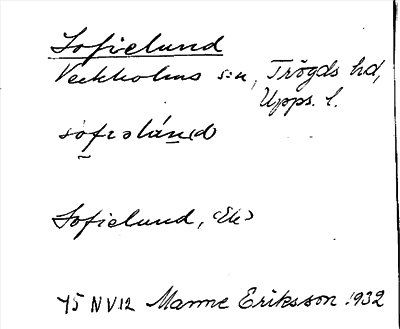 Sofielund
Veckholms s:n, Trögds hd,
Upps. l.
Sofielund, (Ek)
45 NV12 Manne Eriksson 1932